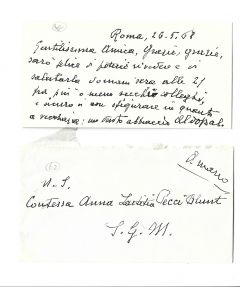 Roma, 26.5.68
Gentilissima Amica, Grazie, grazie,
sarò felice di poterLe rivedere e di
salutarla domani sera alle 21
fra più o meno vecchi colleghi,
e sicuro di non sfigurare in quanto
a vecchiaia: un vasto abbraccio Aldopal.
(62)
R. mano
N. S.
Contessa Anna Laetitia Pecci Blunt
S. G. M.